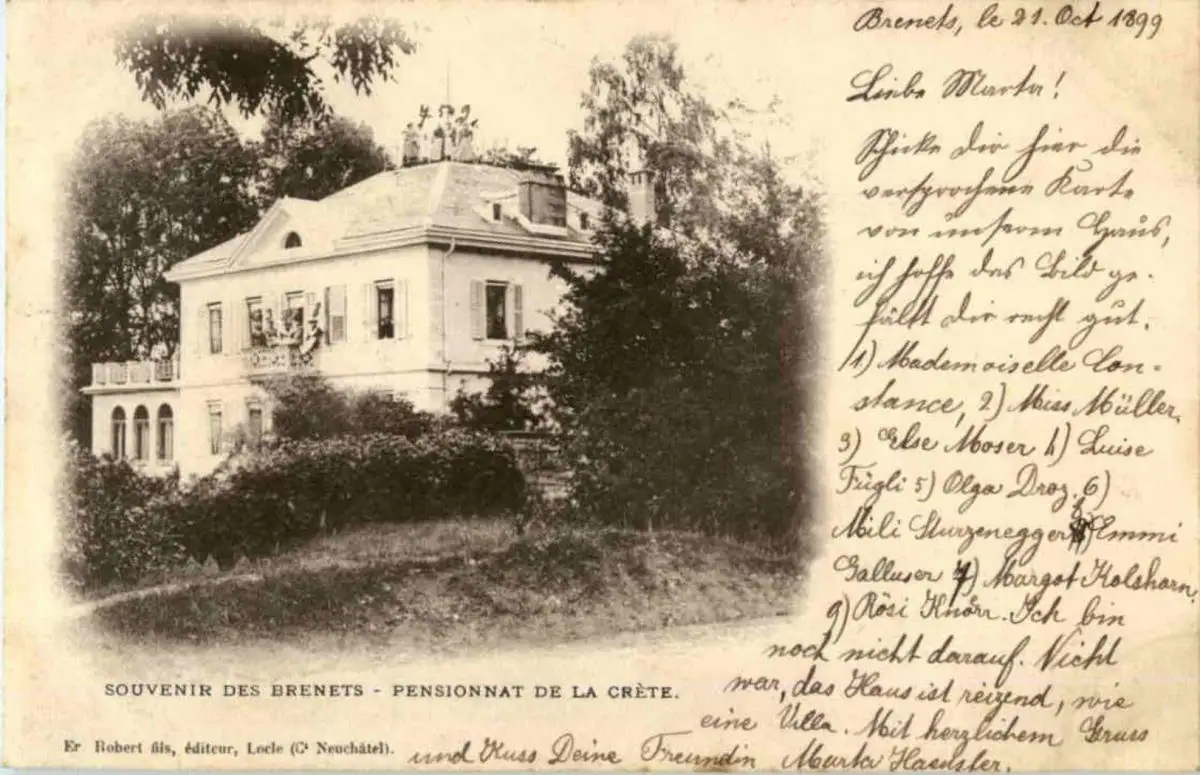 Brenets, le 21. Oct 1899
Liebe Marta!
Schicke dir hier die
versprochene Karte
von unserm Haus,
ich hoffe das Bild ge-
fällt dir recht gut.
1) Mademoiselle Con-
stance, 2) Miss Müller,
3) Else Moser 4) Luise
Fügli 5) Olga Droz, 6)
Mili Sturzenegger Emmi
Galluser 7) Margot Kolshorn,
9) Rösi Knörr. Ich bin
noch nicht darauf. Nicht
war, das Haus ist reizend, wie
eine Villa. Mit herzlichem Gruss
und Kuss Deine Freundin Marta
SOUVENIR DES BRENETS - PENSIONNAT DE LA CRÈTE.
Er Robert fils, éditeur, Locle (Ct Neuchâtel).